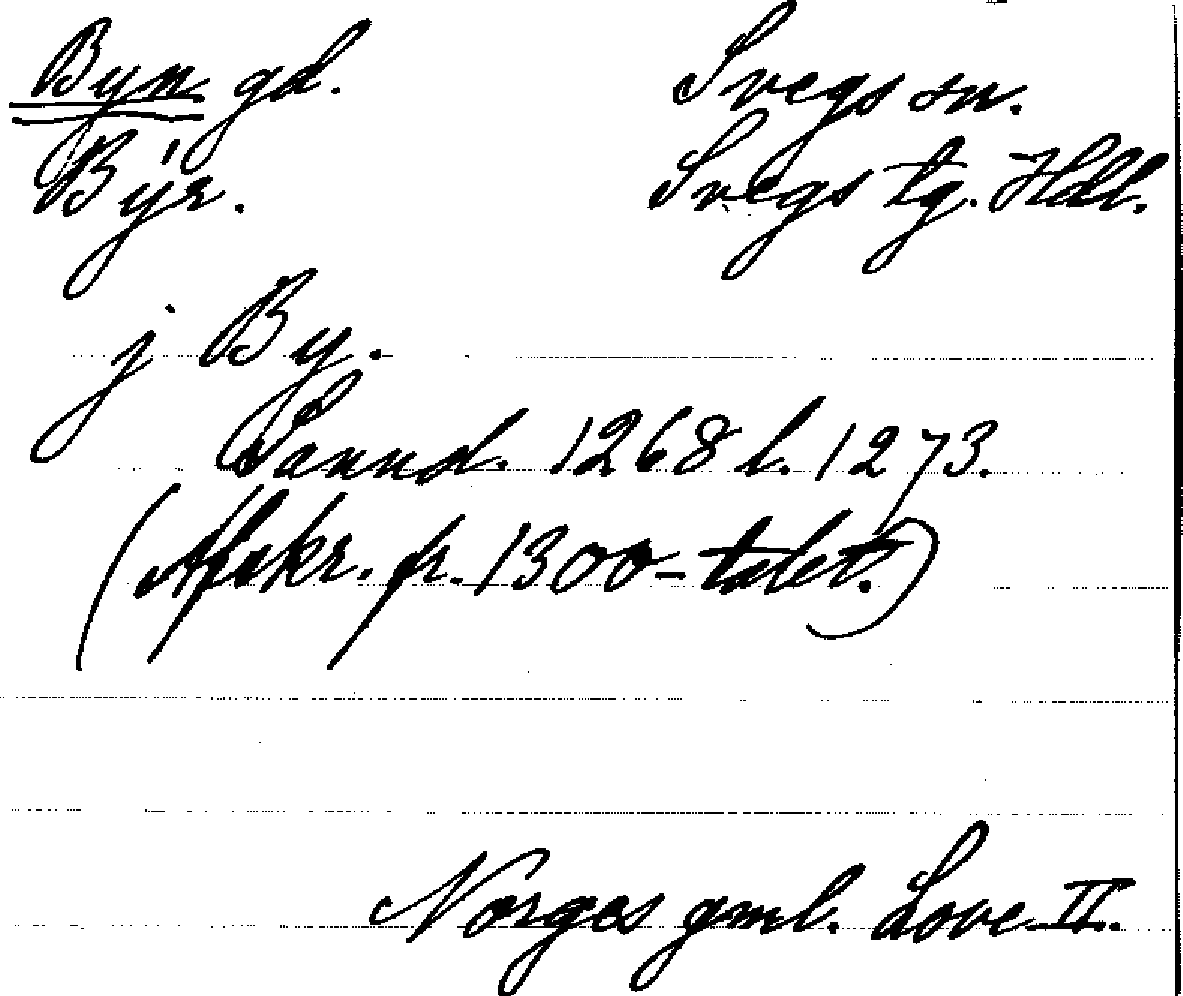 Byn gd. Svegs sn.
Býr. Svegs tg. Hdl.
j By.
Sannol. 1268 l. 1273.
(Afskr. fr. 1300-talet.)
Norges gml. Love II.